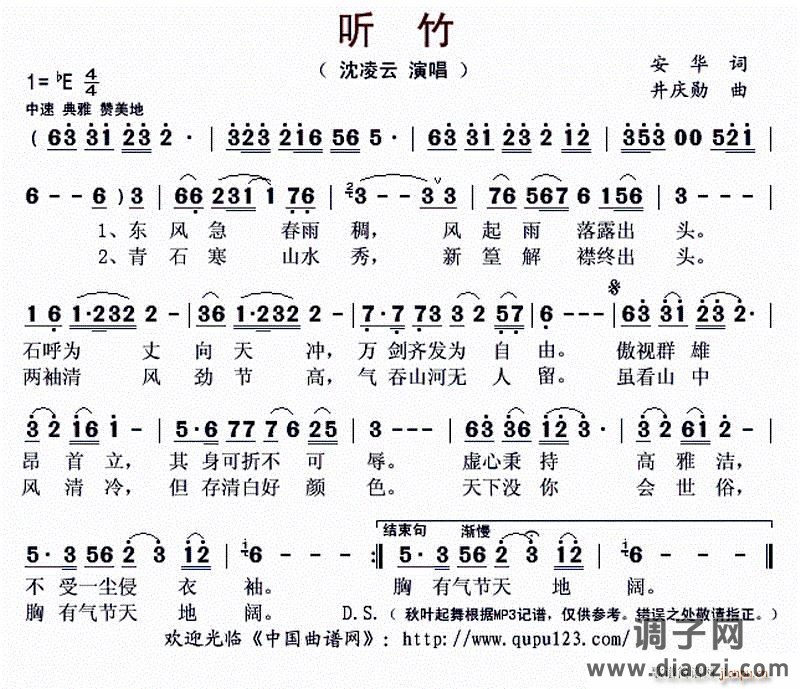 听 竹
（ 沈凌云 演唱 ）
安 华 词
井庆勋 曲
1= ♭E 4/4
中速 典雅 赞美地
( 63 331 23 2· | 323 216 56 5· | 63 331 23 2 12 | 353 00 521 |
6 - - 6 ) 3 | 66 231 1 76 | 3 - - 3 3 | 76 567 6 156 | 3 - - - |
1、东 风 急 春雨 稠， 风 起 雨 落露出 头。
2、青 石 寒 山水 秀， 新 篁 解 襟终出 头。
1 6 1·232 2 - | 36 1·232 2 - | 7·7 73 3 2 57 | 6 - - - | 63 31 23 2· |
石呼为 丈 向 天 冲， 万 剑齐发为 自 由。 傲视群 雄
两袖清 风 劲 节 高， 气 吞山河无 人 留。 虽看山 中
3 2 16 1 - | 5·6 77 7 6 25 | 3 - - - | 63 336 12 3· | 3 2 61 2 - |
昂 首 立， 其 身可折不 可 辱。 虚心秉 持 高 雅 洁，
风 清 冷， 但 存清白好 颜 色。 天下没 你 会 世 俗，
结束句 渐慢
5·3 56 2 3 12 | 6 - - - :| 5·3 56 2 3 12 | 6 - - - ‖
不 受一尘侵 衣 袖。 胸 有气节天 地 阔。
胸 有气节天 地 阔。 D.S.（ 秋叶起舞根据MP3记谱，仅供参考。错误之处敬请指正。）
欢迎光临《中国曲谱网》: http://www.qupu123.com/
调子网
www.diaozi.com